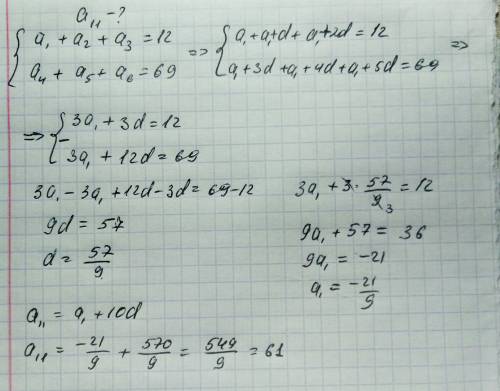 a₁₁ - ?
{ a₁ + a₂ + a₃ = 12 => { a₁ + a₁ + d + a₁ + 2d = 12 =>
{ a₄ + a₅ + a₆ = 69 { a₁ + 3d + a₁ + 4d + a₁ + 5d = 69
=> { 3a₁ + 3d = 12
- { 3a₁ + 12d = 69
3a₁ - 3a₁ + 12d - 3d = 69 - 12
9d = 57
d = 57/9
3a₁ + 3 · 57/9 ₃ = 12
9a₁ + 57 = 36
9a₁ = -21
a₁ = -21/9
a₁₁ = a₁ + 10d
a₁₁ = -21/9 + 570/9 = 549/9 = 61